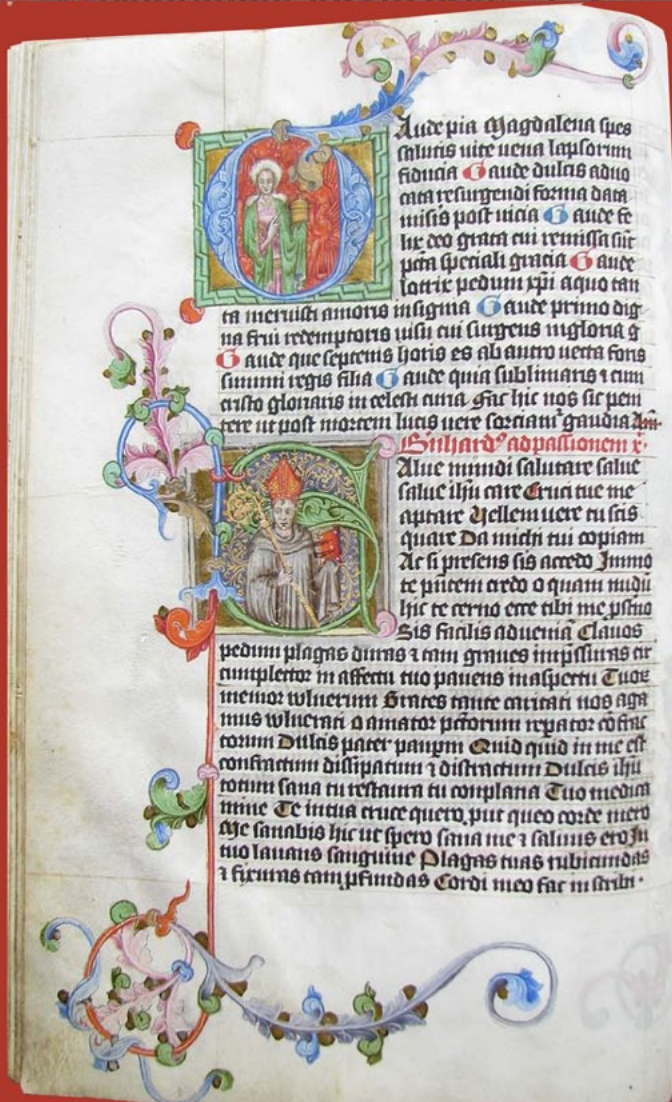 Aude pia Magdalena spes
salutis vite vena lapsorum
fiducia Gaude dulcis advo
cata resurgendi forma data
miseris post vicia Gaude fe
lix deo grata cui remissa sūt
pcta speciali gracia Gaude
lotrix pedum xpi a quo tan
ta meruisti amoris insignia Gaude primo dig
na frui redemptoris visu cui surgens in gloria
Gaude que septenis horis es ab antro vecta foris
summi regis filia Gaude quia sublimaris ⁊ cum
cristo gloriaris in celesti curia Fac hic nos sic peni
tere ut post mortem lucis vere sorciamur gaudia Am
ad passionem x
Alve mundi salutare salve
salve ihū care Cruci tue me
aptare Vellem vere tu scis
quare Da michi tui copiam
Ac si presens sis accedo Immo
te presentem credo o quam nudū
hic te cerno ecce tibi me psterno
Sis facilis ad veniā Clavos
pedum plagas duras ⁊ tam graves impssuras cir
cumplector in affectu tuo pavens in aspectu Tuorum
memor wlnerum Grates tante caritati nos aga
mus wlnerati o amator pctorum repator cōfrac
torum Dulcis pater paupm Quid quid in me est
confractum dissipatum ⁊ distractum Dulcis ihū
totum sana tu restaura tu conplana Tuo medica
mine Te in tua cruce quero put queo corde mero
Me sanabis hic ut spero sana me ⁊ salvus ero In
tuo lavans sanguine Plagas tuas rubicundas
⁊ fixuras tam pfundas Cordi meo fac inscribi